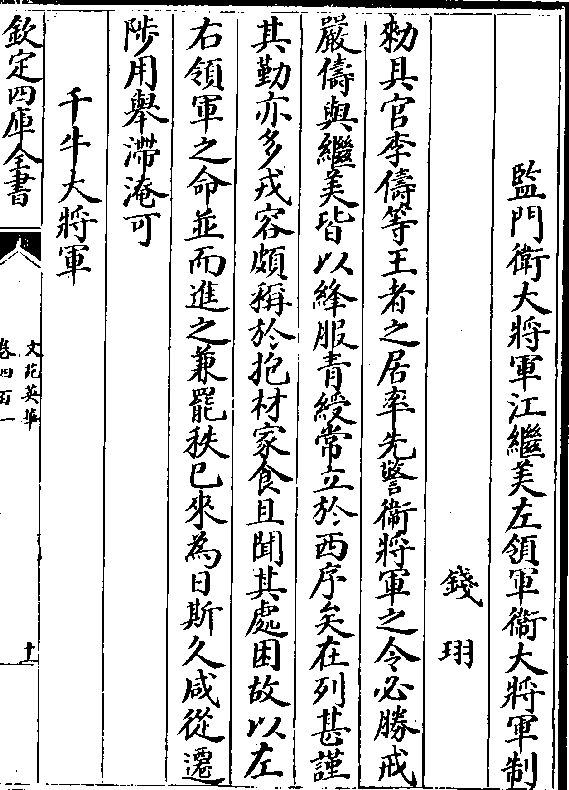 監門衛大將軍江繼美左領軍衛大將軍制
錢珝
勑具官李儔等王者之居率先警衛將軍之令必勝戒
嚴儔與繼美皆以絳服青綬常立於西序矣在列甚謹
其勤亦多戎容頗稱於抱材家食且聞其處困故以左
右領軍之命並而進之兼罷秩已來為日斯久咸從遷
陟用舉滯淹可
千牛大將軍
欽定四庫全書
文苑英華
卷四百一
十一